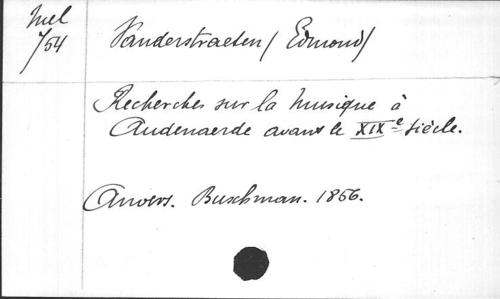 Mel
754
Vanderstraeten (Edmond)
Recherches sur la musique à
Audenaerde avant le XIXe siècle.
Anvers. Buschman. 1856.